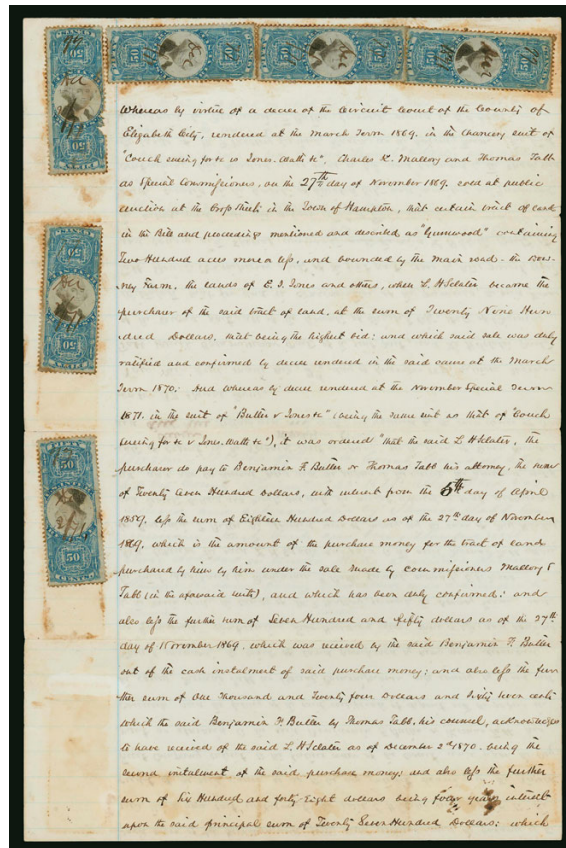 Whereas by virtue of a decree of the Circuit Court of the County of
Elizabeth City, rendered at the March Term 1869. in the Chancery suit of
"Couch suing for &c vs Jones. Watts &c", Charles K. Mallory and Thomas Tabb
as Special Commissioners, on the 27th day of November 1869. sold at public
auction at the Cross Streets in the Town of Hampton, that certain tract of land
in the Bill and proceedings mentioned and described as "Gumwood" containing
Two Hundred acres more or less, and bounded by the main road. the
Farm. the lands of E. Jones and others, when L. H Sclater became the
purchaser of the said tract of land. at the sum of Twenty Hun
dred Dollars. that being the highest bid: and which said sale was duly
ratified and confirmed by decree rendered in the said cause at the March
Term 1870: And whereas by decree rendered at the November Special Term
1871. in the suit of "Butler v Jones &c" (being the same suit as that of "Couch
suing for &c v Jones. Watts &c"), it was ordered "that the said L H Sclater, the
purchaser do pay to Benjamin F. Butler or Thomas Tabb his attorney, the sum
of Twenty Seven Hundred Dollars, with interest from the 5th day of April
1859. less the sum of Eighteen Hundred Dollars as of the 27th day of November
1869, which is the amount of the purchase money for the tract of land
purchased by him by him under the sale made by commissioners Mallory &
Tabb (in the aforesaid suits), and which has been duly confirmed: and
also less the further sum of Seven Hundred and fifty dollars as of the 27th
day of November 1869. which was received by the said Benjamin F. Butler
out of the cash instalment of said purchase money; and also less the fur
ther sum of One Thousand and Twenty four Dollars and Sixty seven cents
which the said Benjamin F. Butler by Thomas Tabb. his counsel, acknowledges
to have received of the said L. H Sclater as of December 2nd 1870. being the
second instalment of the said purchase money; and also less the further
sum of Six Hundred and forty Eight dollars being four years interest
upon the said principal sum of Twenty Seven Hundred Dollars: which